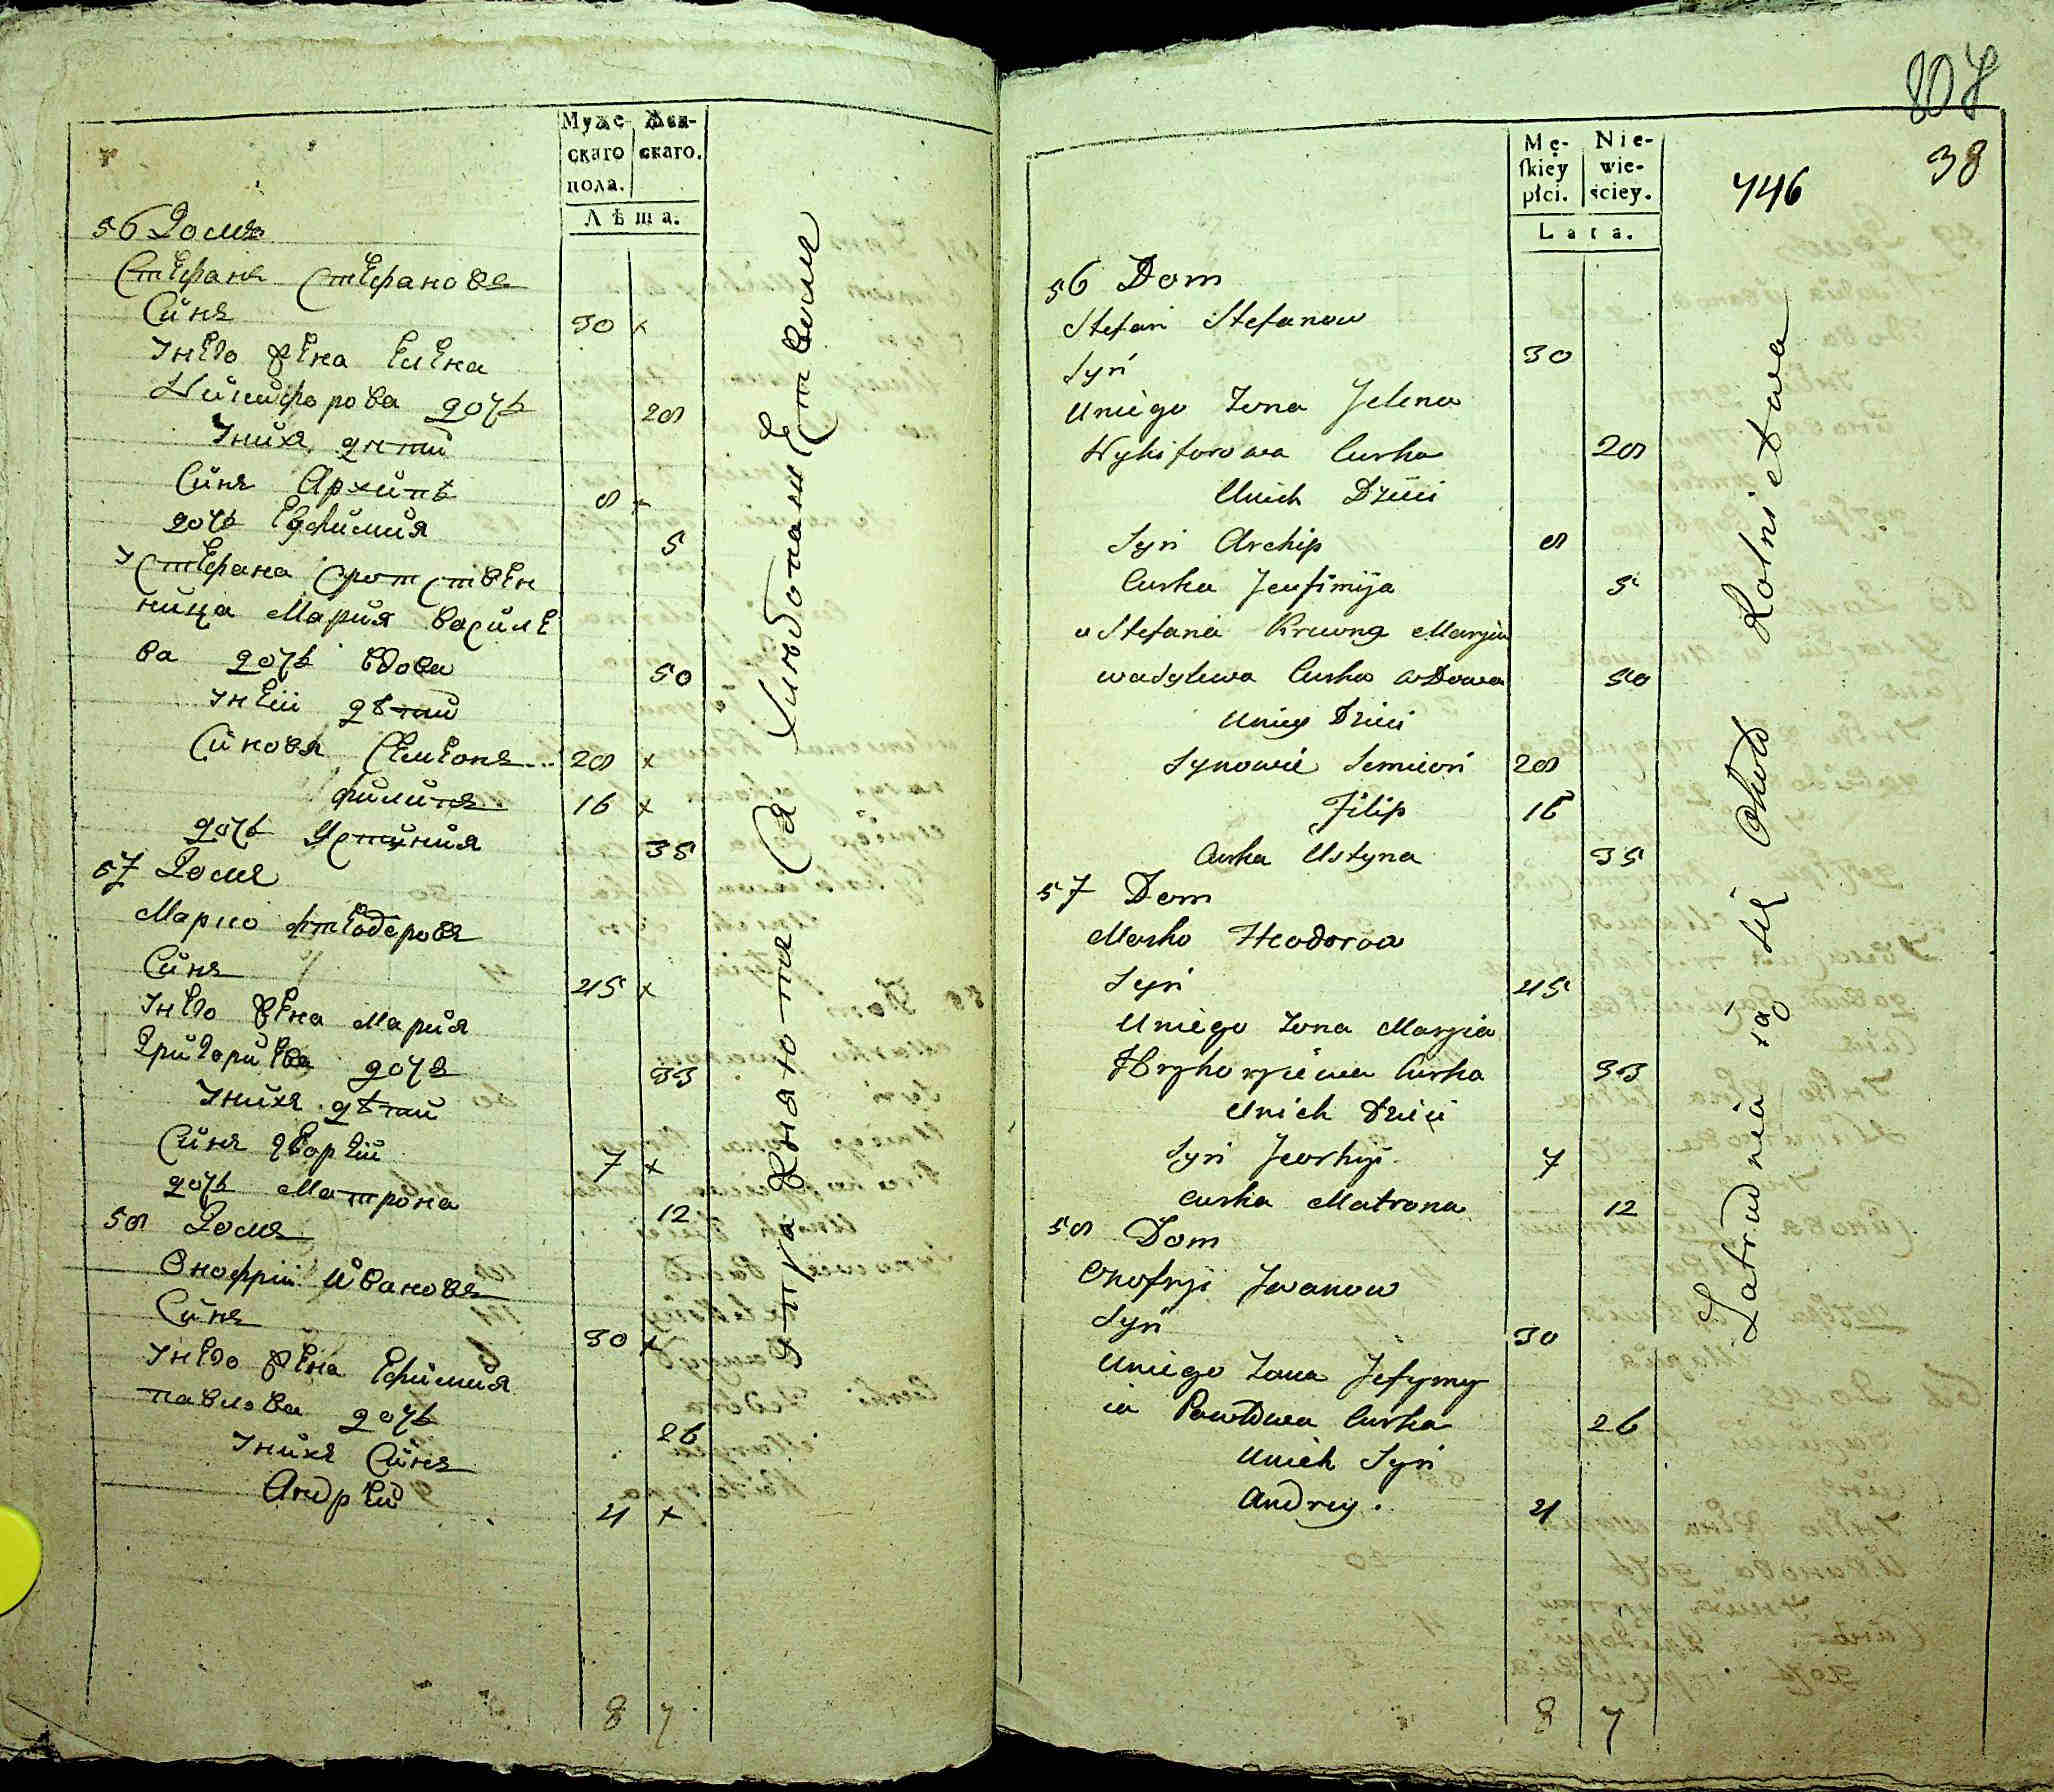 Муже- Жен-
скаго скаго.
пола.
Лѣта.
56 Домъ
Стефанъ Стефановъ
Синъ 30 х
Унего жена Елена
Никифорова дочь 28
Унихъ дети
Синъ Архипъ 8 х
дочь Евфимия 5
УСтефана Сротствен
ница Мария Василе
ва дочь вдова 50
Унеи дѣти
Синовя Семионъ 28 х
Филипъ 16 х
дочь Устиния 35
57 Домъ
Марко Фтеодеровъ
Синъ 45 х
Унего жена Мария
Григориева дочъ 33
Унихъ дѣти
Синъ Георгии 7 х
дочь Матрона 12
58 Домъ
Онофрии Ивановъ
Синъ 30 х
Унего жена Ефимия
павлова дочь 26
Унихъ Синъ
Андреи 4 х
8 7
упражняются Ся Хлѣбопашествомъ
807
38
746
Mę- Nie-
ſkiey wie-
płci. ściey.
Lata.
56 Dom
Stefan Stefanow
Syn 30
Uniego Żona Jelena
Nykiforowa Curka 28
Unich Dzieci
Syn Archip 8
Curka Jeufimija 5
u Stefana Krewna Maryia
wasylewa Curka wdowa 50
Uniey Dzieci
Synowie Semion 28
Filip 16
Curka Ustyna 35
57 Dom
Marko Fteodorow
Syn 45
Uniego żona Maryia
Hryhoryiewa Curka 33
Unich Dzieci
Syn Jeorhyi 7
Curka Matrona 12
58 Dom
Onofryi Jwanow
Syn 30
Uniego Żona Jefymy
ia Pawłowa Curka 26
Unich Syn
Andrey. 4
8 7
Zatrudniaią się Około Rolnictwa